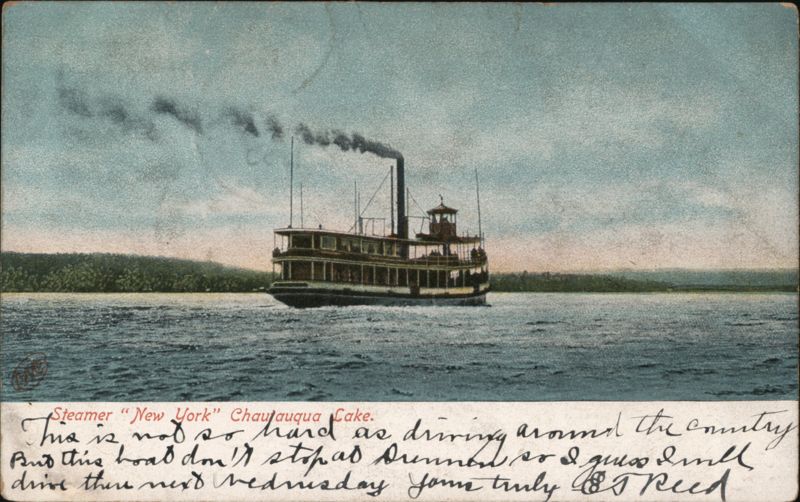 Steamer "New York" Chautauqua Lake.
This is not so hard as driving around the country
But this boat don't stop at so I guess I will
drive then next Wednesday Yours truly E T Reed